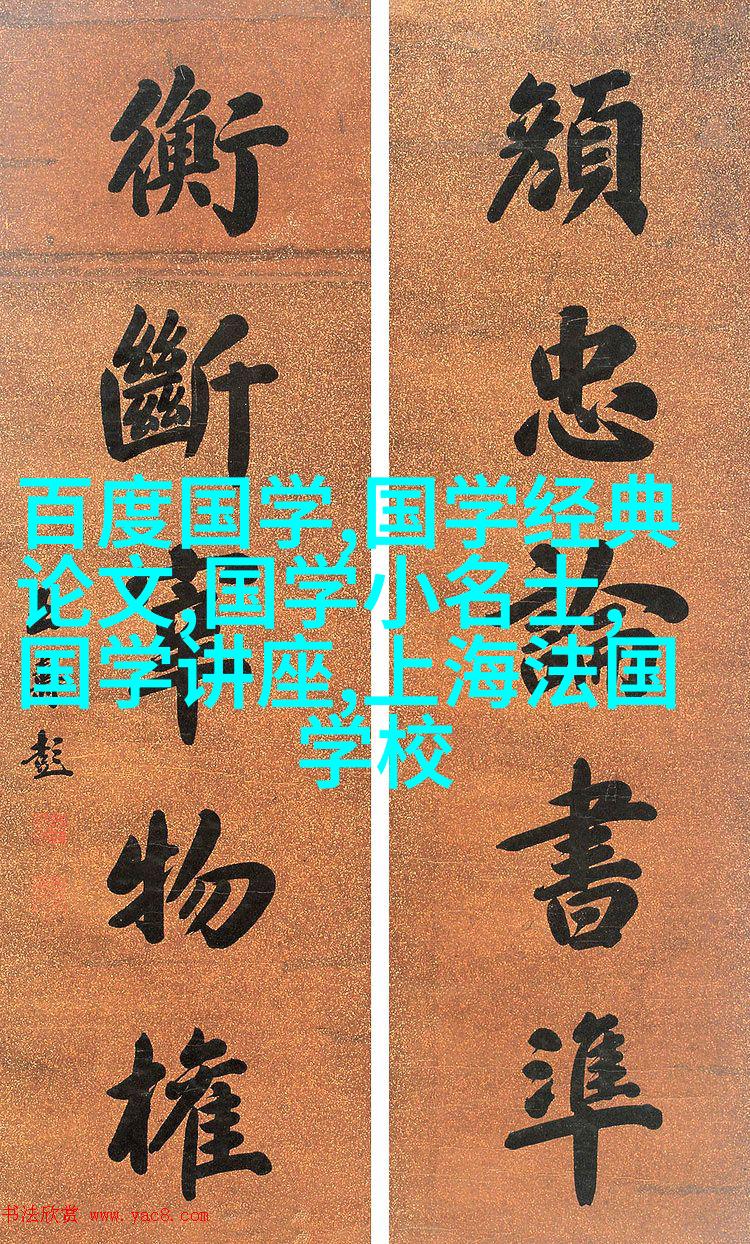 顏忠書準
衡斷物權
彭
百度国学,国学经典
论文,国学小名士,
国学讲座,上海法国
学校
书法欣赏 www.yac8.com